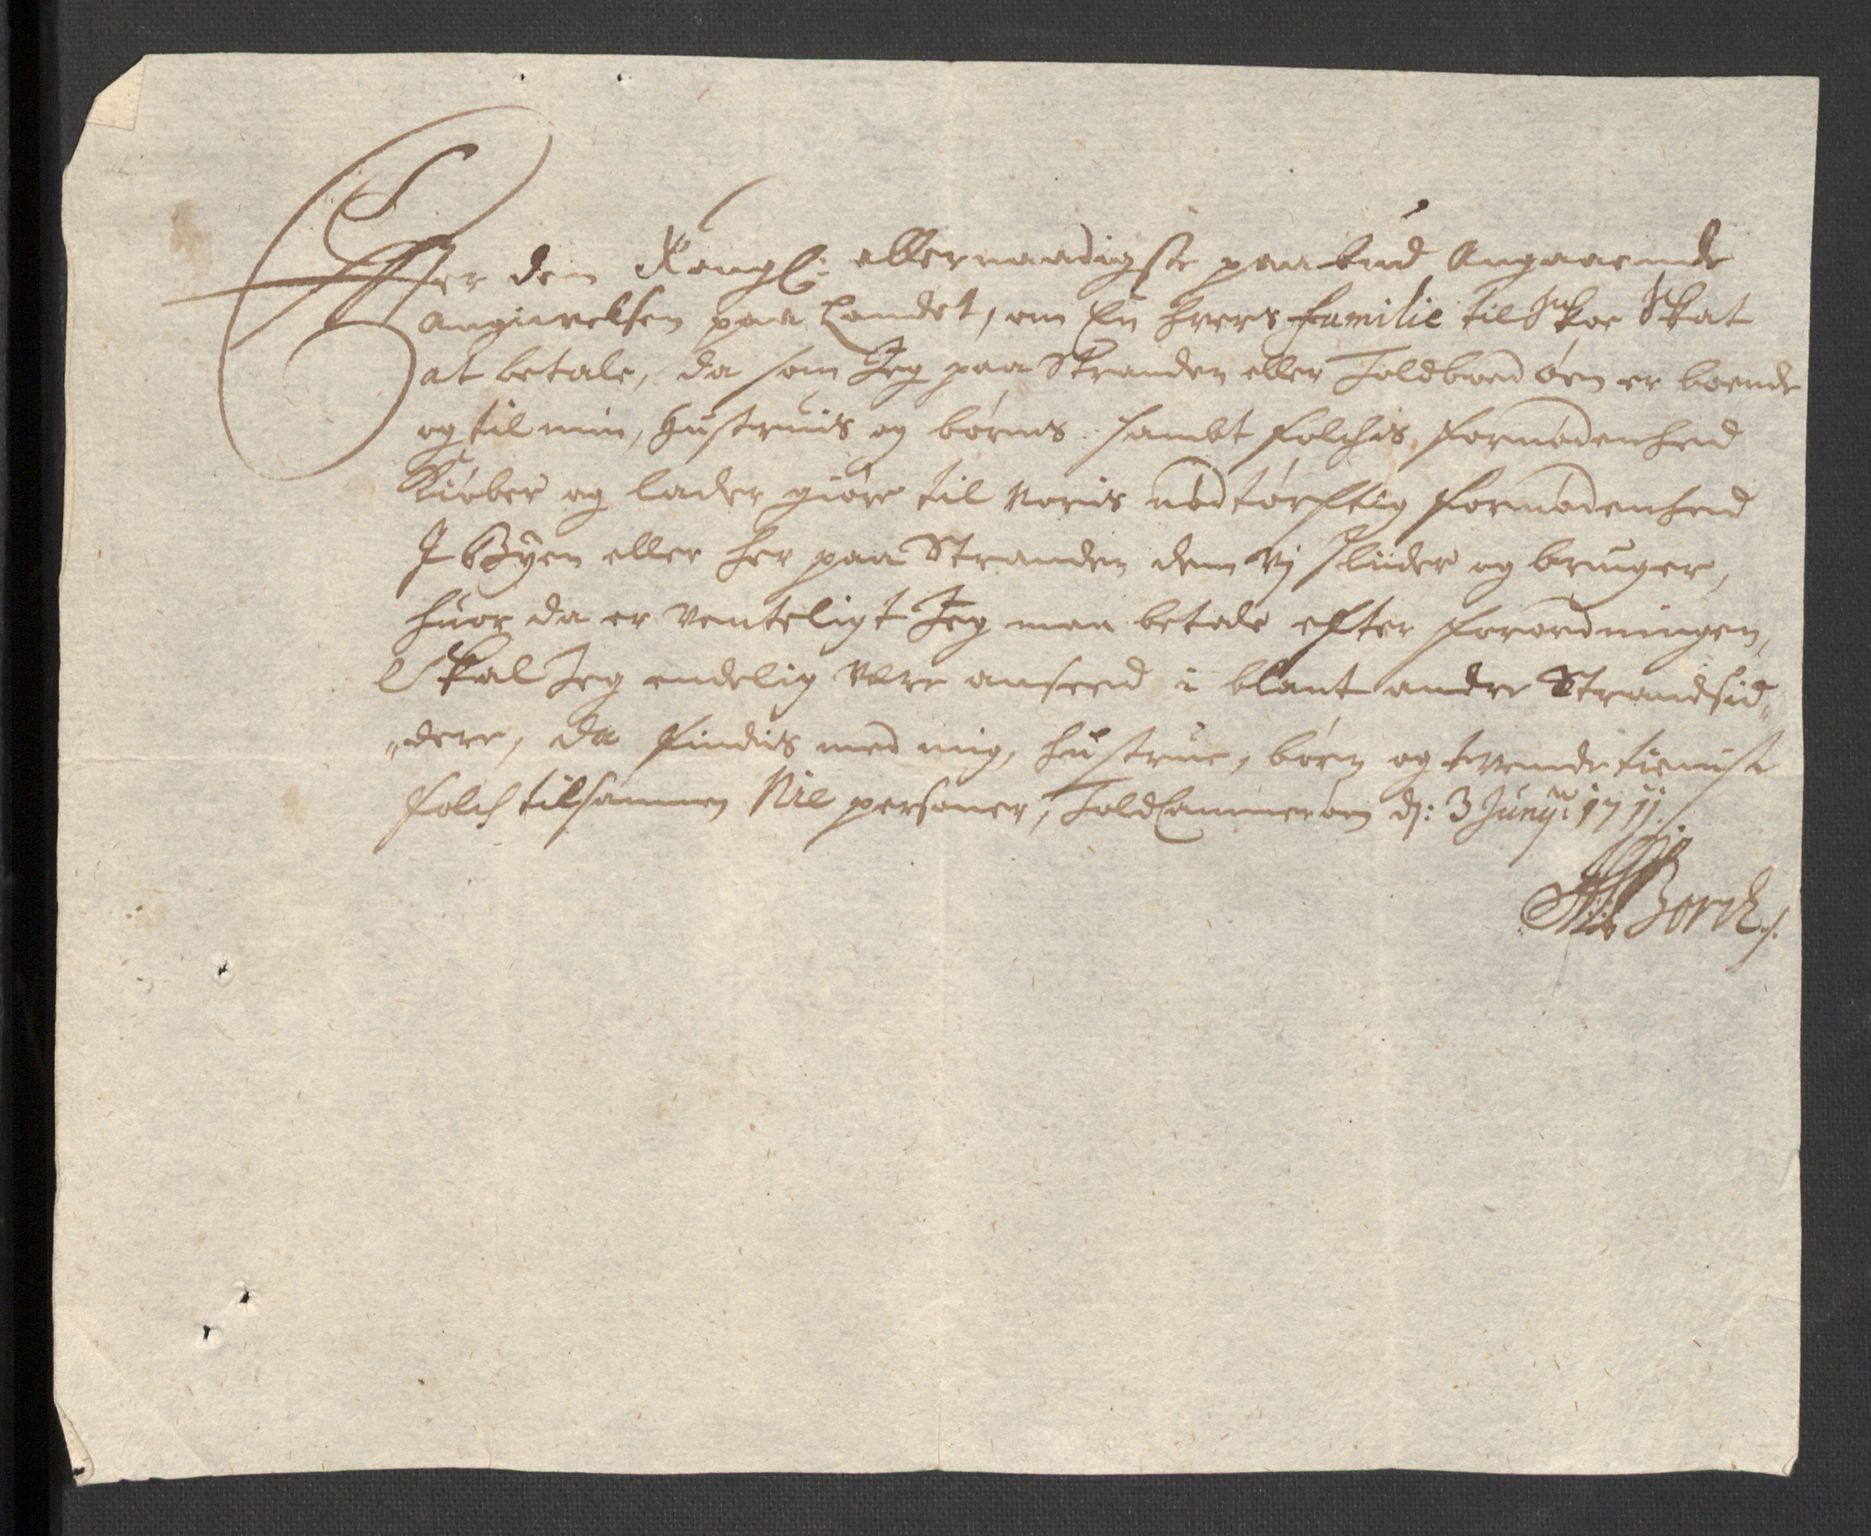 Efter den Kongl: allernaadigste paabud Angaaende
Angivelsen paa Landet, om En hvers familie til Skoe Skat
at betale, da som Jeg paa Stranden eller Toldboed øen er boende
og til min, hustruis og børns sambt folchis fornødenhed
Kiøber og lader giøre til voris nødtørftig fornødenhed
I Byen eller her paa Stranden dem vj sliider og bruger,
huor da er venteligt Jeg maa betale efter forordningen,
Skal Jeg endelig være anseed i blant andre Strandsid„
„dere, da findis med mig, hustrue, børn og tvende tieniste
folch tilsammen Nie personer, Toldcammerøen dj: 3 Junij: 1711.
Nils Borch